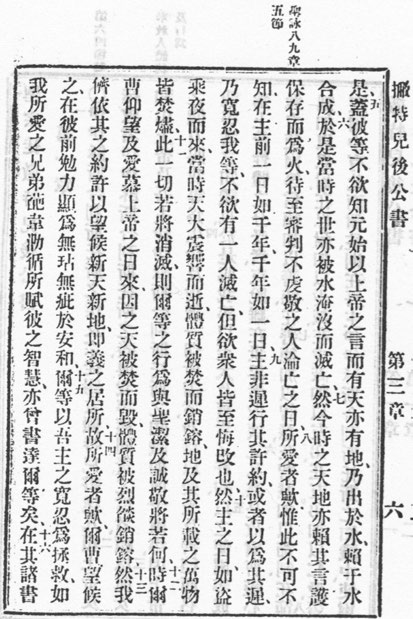 聖詠八九章
五節
撇特兒後公書 第三章 六
是、五蓋彼等不欲知元始以上帝之言而有天、亦有地、乃出於水、賴于水
合成、六於是當時之世亦被水淹沒而滅亡、七然今時之天地、亦賴其言護
保存而爲火、待至審判不虔敬之人淪亡之日、八所愛者歟、惟此不可不
知、在主前一日如千年、千年如一日、九主非遲行其許約、或者以爲其遲、
乃寬忍我等、不欲有一人滅亡、但欲衆人皆至悔改也、十然主之日、如盜
乘夜而來、當時天大震響而逝、體質被焚而銷鎔、地及其所載之萬物
皆焚燼、十一此一切若將消滅、則爾等之行爲與聖潔及誠敬將若何、十二時爾
曹仰望及愛慕上帝之日來、因之天被焚而毀、體質被烈燄銷鎔、十三然我
儕依其之約許、以望候新天新地、卽義之居所、十四故所愛者歟、爾曹望候
之、在彼前勉力顯爲無玷無疵於安和、十五爾等以吾主之寬忍爲拯救、如
我所愛之兄弟葩韋泐、循所賦彼之智慧、亦曾書達爾等矣、十六在其諸書